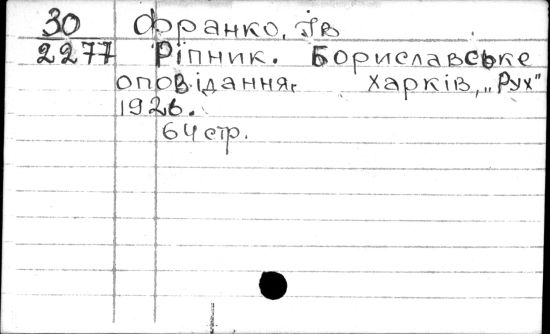 30 Франко, Ів
2277 Ріпник. Бориславське
оповідання. Харків, „Рух"
1926.
64 стр.